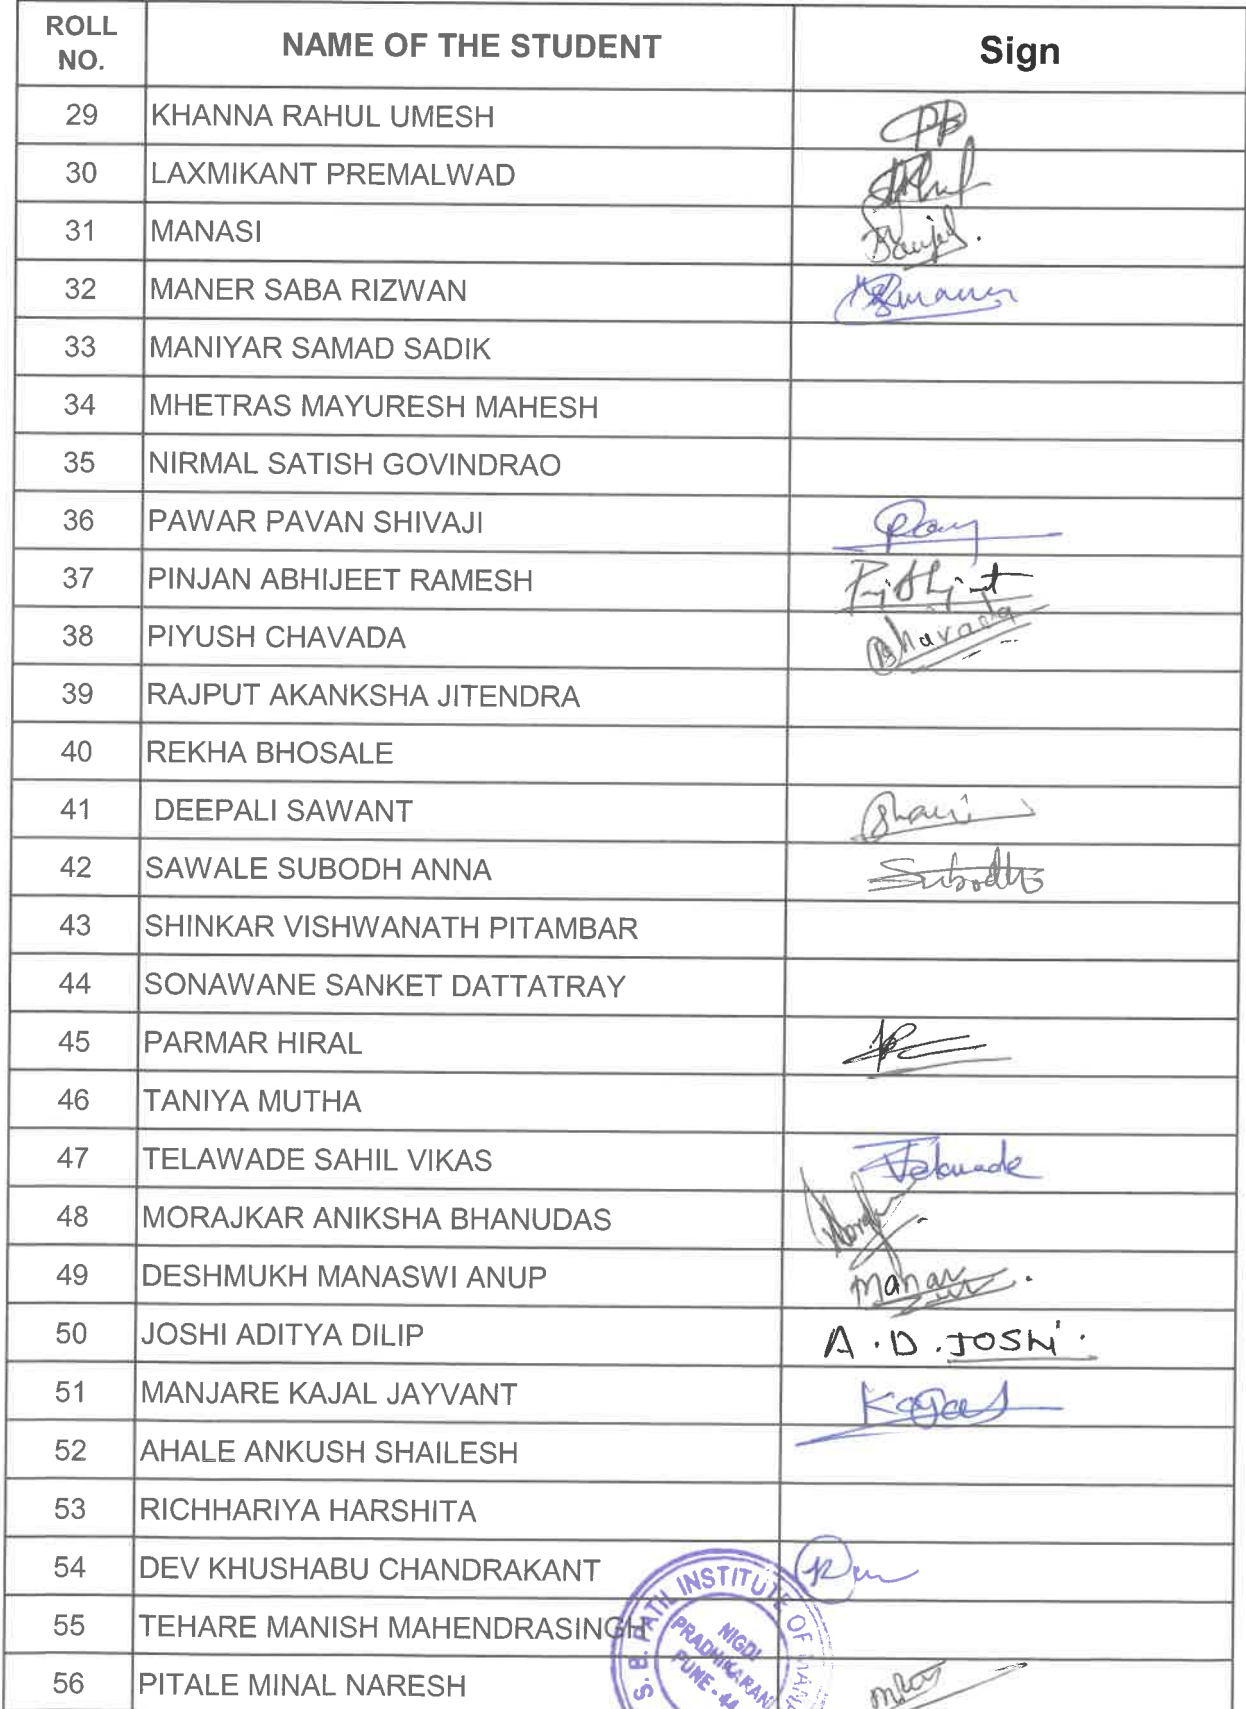 ROLL NO. NAME OF THE STUDENT Sign
29 KHANNA RAHUL UMESH
30 LAXMIKANT PREMALWAD
31 MANASI
32 MANER SABA RIZWAN
33 MANIYAR SAMAD SADIK
34 MHETRAS MAYURESH MAHESH
35 NIRMAL SATISH GOVINDRAO
36 PAWAR PAVAN SHIVAJI
37 PINJAN ABHIJEET RAMESH
38 PIYUSH CHAVADA
39 RAJPUT AKANKSHA JITENDRA
40 REKHA BHOSALE
41 DEEPALI SAWANT
42 SAWALE SUBODH ANNA Subodh
43 SHINKAR VISHWANATH PITAMBAR
44 SONAWANE SANKET DATTATRAY
45 PARMAR HIRAL
46 TANIYA MUTHA
47 TELAWADE SAHIL VIKAS
48 MORAJKAR ANIKSHA BHANUDAS
49 DESHMUKH MANASWI ANUP
50 JOSHI ADITYA DILIP A.D.JOSHI.
51 MANJARE KAJAL JAYVANT Kajal
52 AHALE ANKUSH SHAILESH
53 RICHHARIYA HARSHITA
54 DEV KHUSHABU CHANDRAKANT
55 TEHARE MANISH MAHENDRASINGH
56 PITALE MINAL NARESH
S. B. PATIL INSTITUTE OF MANA
NIGDI
PRADHIKARAN
PUNE - 44